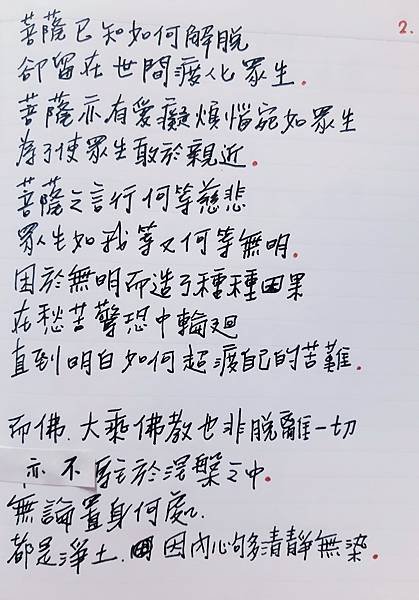 2.
菩薩已知如何解脫
卻留在世間渡化眾生.
菩薩亦有愛癡煩惱宛如眾生
為了使眾生敢於親近.
菩薩之言行何等慈悲
眾生如我等又何等無明.
因於無明而造了種種因果
在愁苦驚恐中輪迴
直到明白如何超渡自己的苦難.
而佛.大乘佛教也非脫離一切
亦不駐於涅槃之中.
無論置身何處.
都是淨土.因內心夠清靜無染.